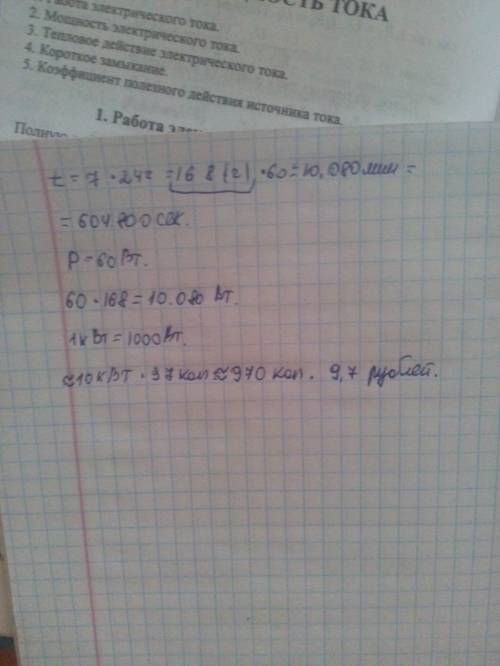 Работа электрического тока.
НОСТЬ ТОКА
2. Мощность электрического тока.
3. Тепловое действие электрического тока.
4. Короткое замыкание.
5. Коэффициент полезного действия источника тока.
1. Работа эле
Полную
t = 7 · 24г = 168 (г) · 60 = 10,080 мин =
= 604.800 сек.
P = 60 Вт.
60 · 168 = 10.080 Вт.
1кВт = 1000 Вт.
≈ 10 кВт · 97 коп ≈ 970 коп. 9,7 рублей.